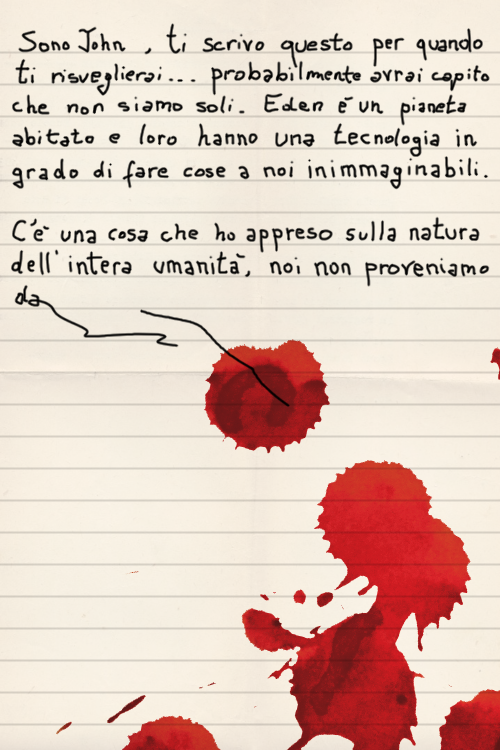 Sono John , ti scrivo questo per quando
ti risveglierai... probabilmente avrai capito
che non siamo soli. Eden è un pianeta
abitato e loro hanno una tecnologia in
grado di fare cose a noi inimmaginabili.
C'è una cosa che ho appreso sulla natura
dell'intera umanità, noi non proveniamo
da